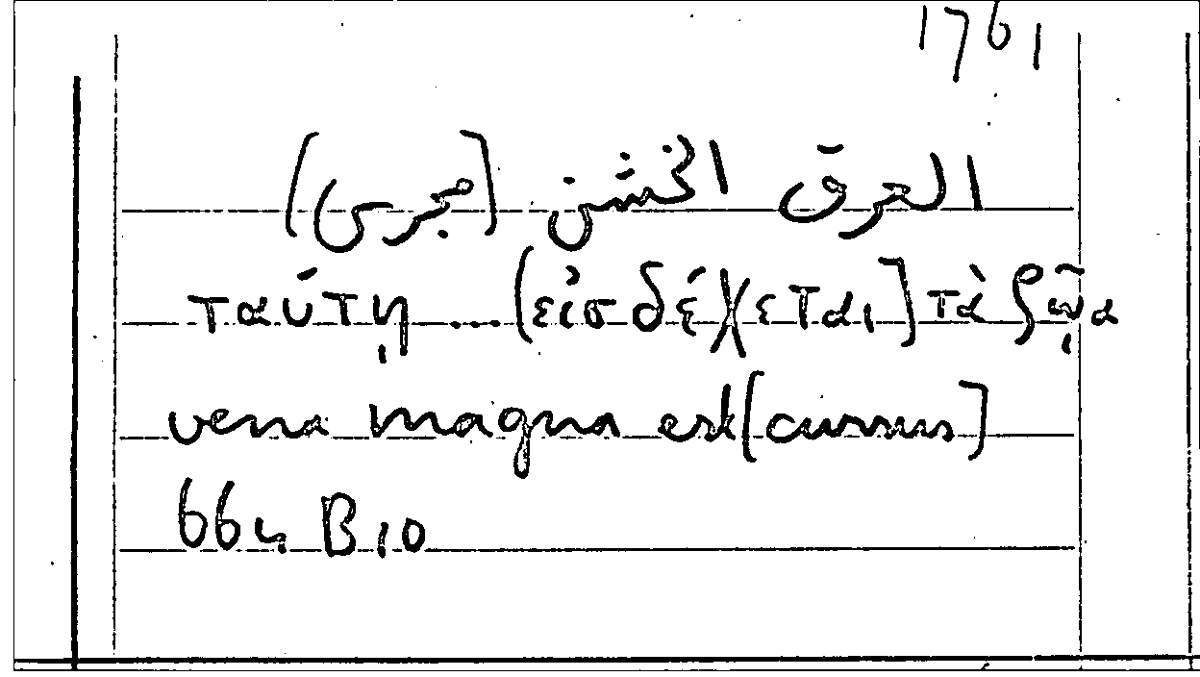 1761
العرق الخشن (مجرى)
ταύτῃ ... (εἰσδέχεται) τὰ ζῷα
vena magna est (cursus)
664 B 10